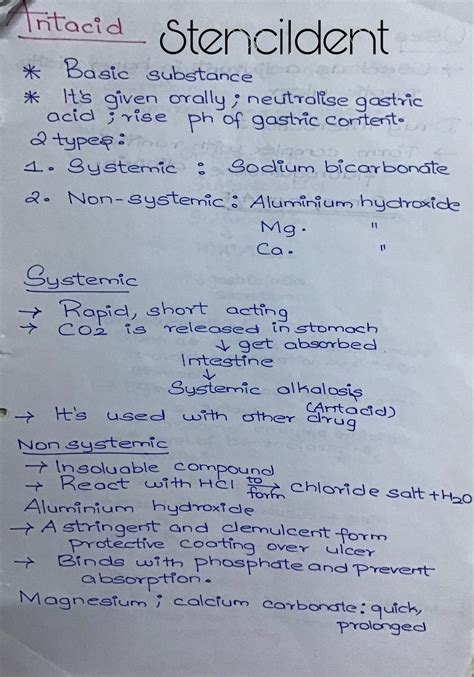 Antacid Stencildent
* Basic substance
* It's given orally ; neutrolise gastric
acid ; rise ph of gastric content.
2 types :
1. Systemic : Sodium bicarbonate
2. Non-systemic : Aluminium hydroxide
Mg. "
Ca. "
Systemic
→ Rapid, short acting
→ CO2 is released in stomach
↓ get absorbed
Intestine
↓
Systemic alkalosis
→ It's used with other (Antacid) drug
Non systemic
→ Insoluable compound
→ React with HCl to form → chloride salt + H2O
Aluminium hydroxide
→ Astringent and demulcent-form
protective coating over ulcer
→ Binds with phosphate and prevent
absorption.
Magnesium ; calcium carbonate : quick,
prolonged